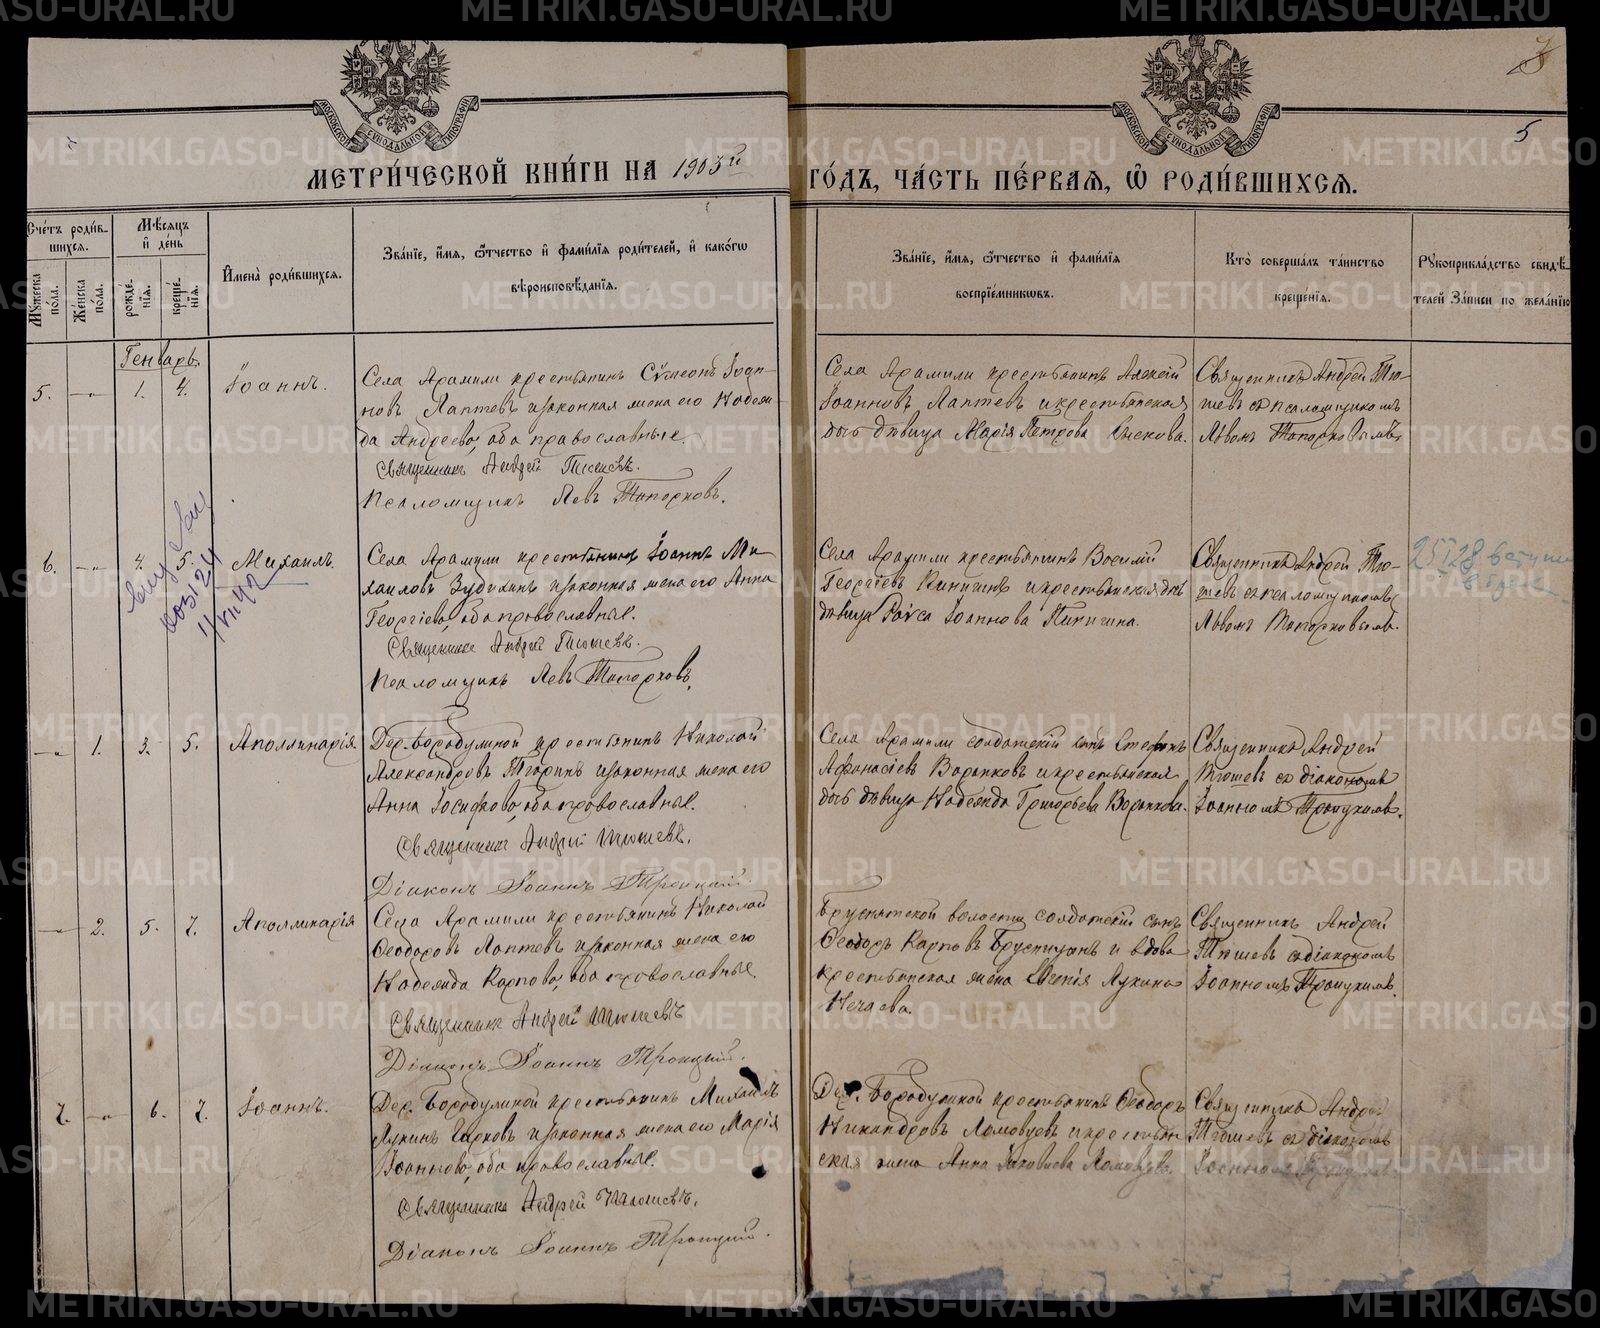 МЕТРИ́ЧЕСКОЙ КНИ́ГИ НА 1903й ГО́ДЪ, ЧА́СТЬ ПЕ́РВАЯ, Ѿ РОДИ́ВШИХСЯ.
5
Сче́тъ роди́в-
шихся.
Му́жеска пола.
Же́нска по́ла.
Мѣ́сяцъ
и҆ де́нь
рожде́нїя.
креще́нїя.
И҆мена̀ роди́вшихся.
Зва́нїе, и҆́мя, ѻ҆́тчество и҆ фами́лїя роди́телей, и҆ како́гѡ
вѣроисповѣ́данїя.
Зва́нїе, и҆́мя, ѻ҆́тчество и҆ фами́лїя
воспрїе́мникѡвъ.
Кто̀ соверша́лъ та́инство
креще́нїя.
Рꙋкоприкла́дство свидѣ́-
телей За́писи по жела́нїю
Генварь.
5. — 1. 4. Іоаннъ.
Села Арамили крестьянинъ Сѵмеонъ Іоан-
новъ Лаптевъ и законная жена его Надеж-
да Андреева, оба православные.
Священникъ Андрей Тюшевъ.
Псаломщикъ Левъ Топорковъ.
Села Арамили крестьянинъ Алексій
Іоанновъ Лаптевъ и крестьянская
дочь дѣвица Марія Петрова
Священникъ Андрей Тю-
шевъ съ псаломщикомъ
Львомъ Топорковымъ.
6. — 4. 5. Михаилъ.
Села Арамили крестьянинъ Іоаннъ Ми-
хаиловъ Зубихинъ и законная жена его Анна
Георгіева, оба православные.
Священникъ Андрей Тюшевъ.
Псаломщикъ Левъ Топорковъ.
Села Арамили крестьянинъ Василій
Георгіевъ Кипишинъ и крестьянская дочь
дѣвица Раиса Іоаннова
Священникъ Андрей Тю-
шевъ съ псаломщикомъ
Львомъ Топорковымъ.
— 1. 3. 5. Аполлинарія
Дер. Бородулиной крестьянинъ Николай
Александровъ и законная жена его
Анна Іосифова, оба православные.
Священникъ Андрей Тюшевъ.
Діаконъ Іоаннъ Троицкій.
Села Арамили солдатскій сынъ Стефанъ
Афанасіевъ Воронковъ и крестьянская
дочь дѣвица Надежда Григорьева Воронкова.
Священникъ Андрей
Тюшевъ съ діакономъ
Іоанномъ Троицкимъ.
— 2. 5. 7. Аполлинарія
Села Арамили крестьянинъ Николай
Ѳеодоровъ Лаптевъ и законная жена его
Надежда Карпова, оба православные.
Священникъ Андрей Тюшевъ
Діаконъ Іоаннъ Троицкій.
волости солдатскій сынъ
Ѳеодоръ Карповъ Брусницынъ и вдова
крестьянская жена Лукина
Нечаева.
Священникъ Андрей
Тюшевъ съ діакономъ
Іоанномъ Троицкимъ.
7. — 6. 7. Іоаннъ.
Дер. Бородулиной крестьянинъ Михаилъ
Лукинъ и законная жена его Марія
Іоаннова, оба православные.
Священникъ Андрей Тюшевъ.
Діаконъ Іоаннъ Троицкій.
Дер. Бородулиной крестьянинъ Ѳеодоръ
Никандровъ Ломовцевъ и крестьян
ская жена Анна Яковлева Ломовцева.
Священникъ Андрей
Тюшевъ съ діакономъ
Іоанномъ
METRIKI.GASO-URAL.RU